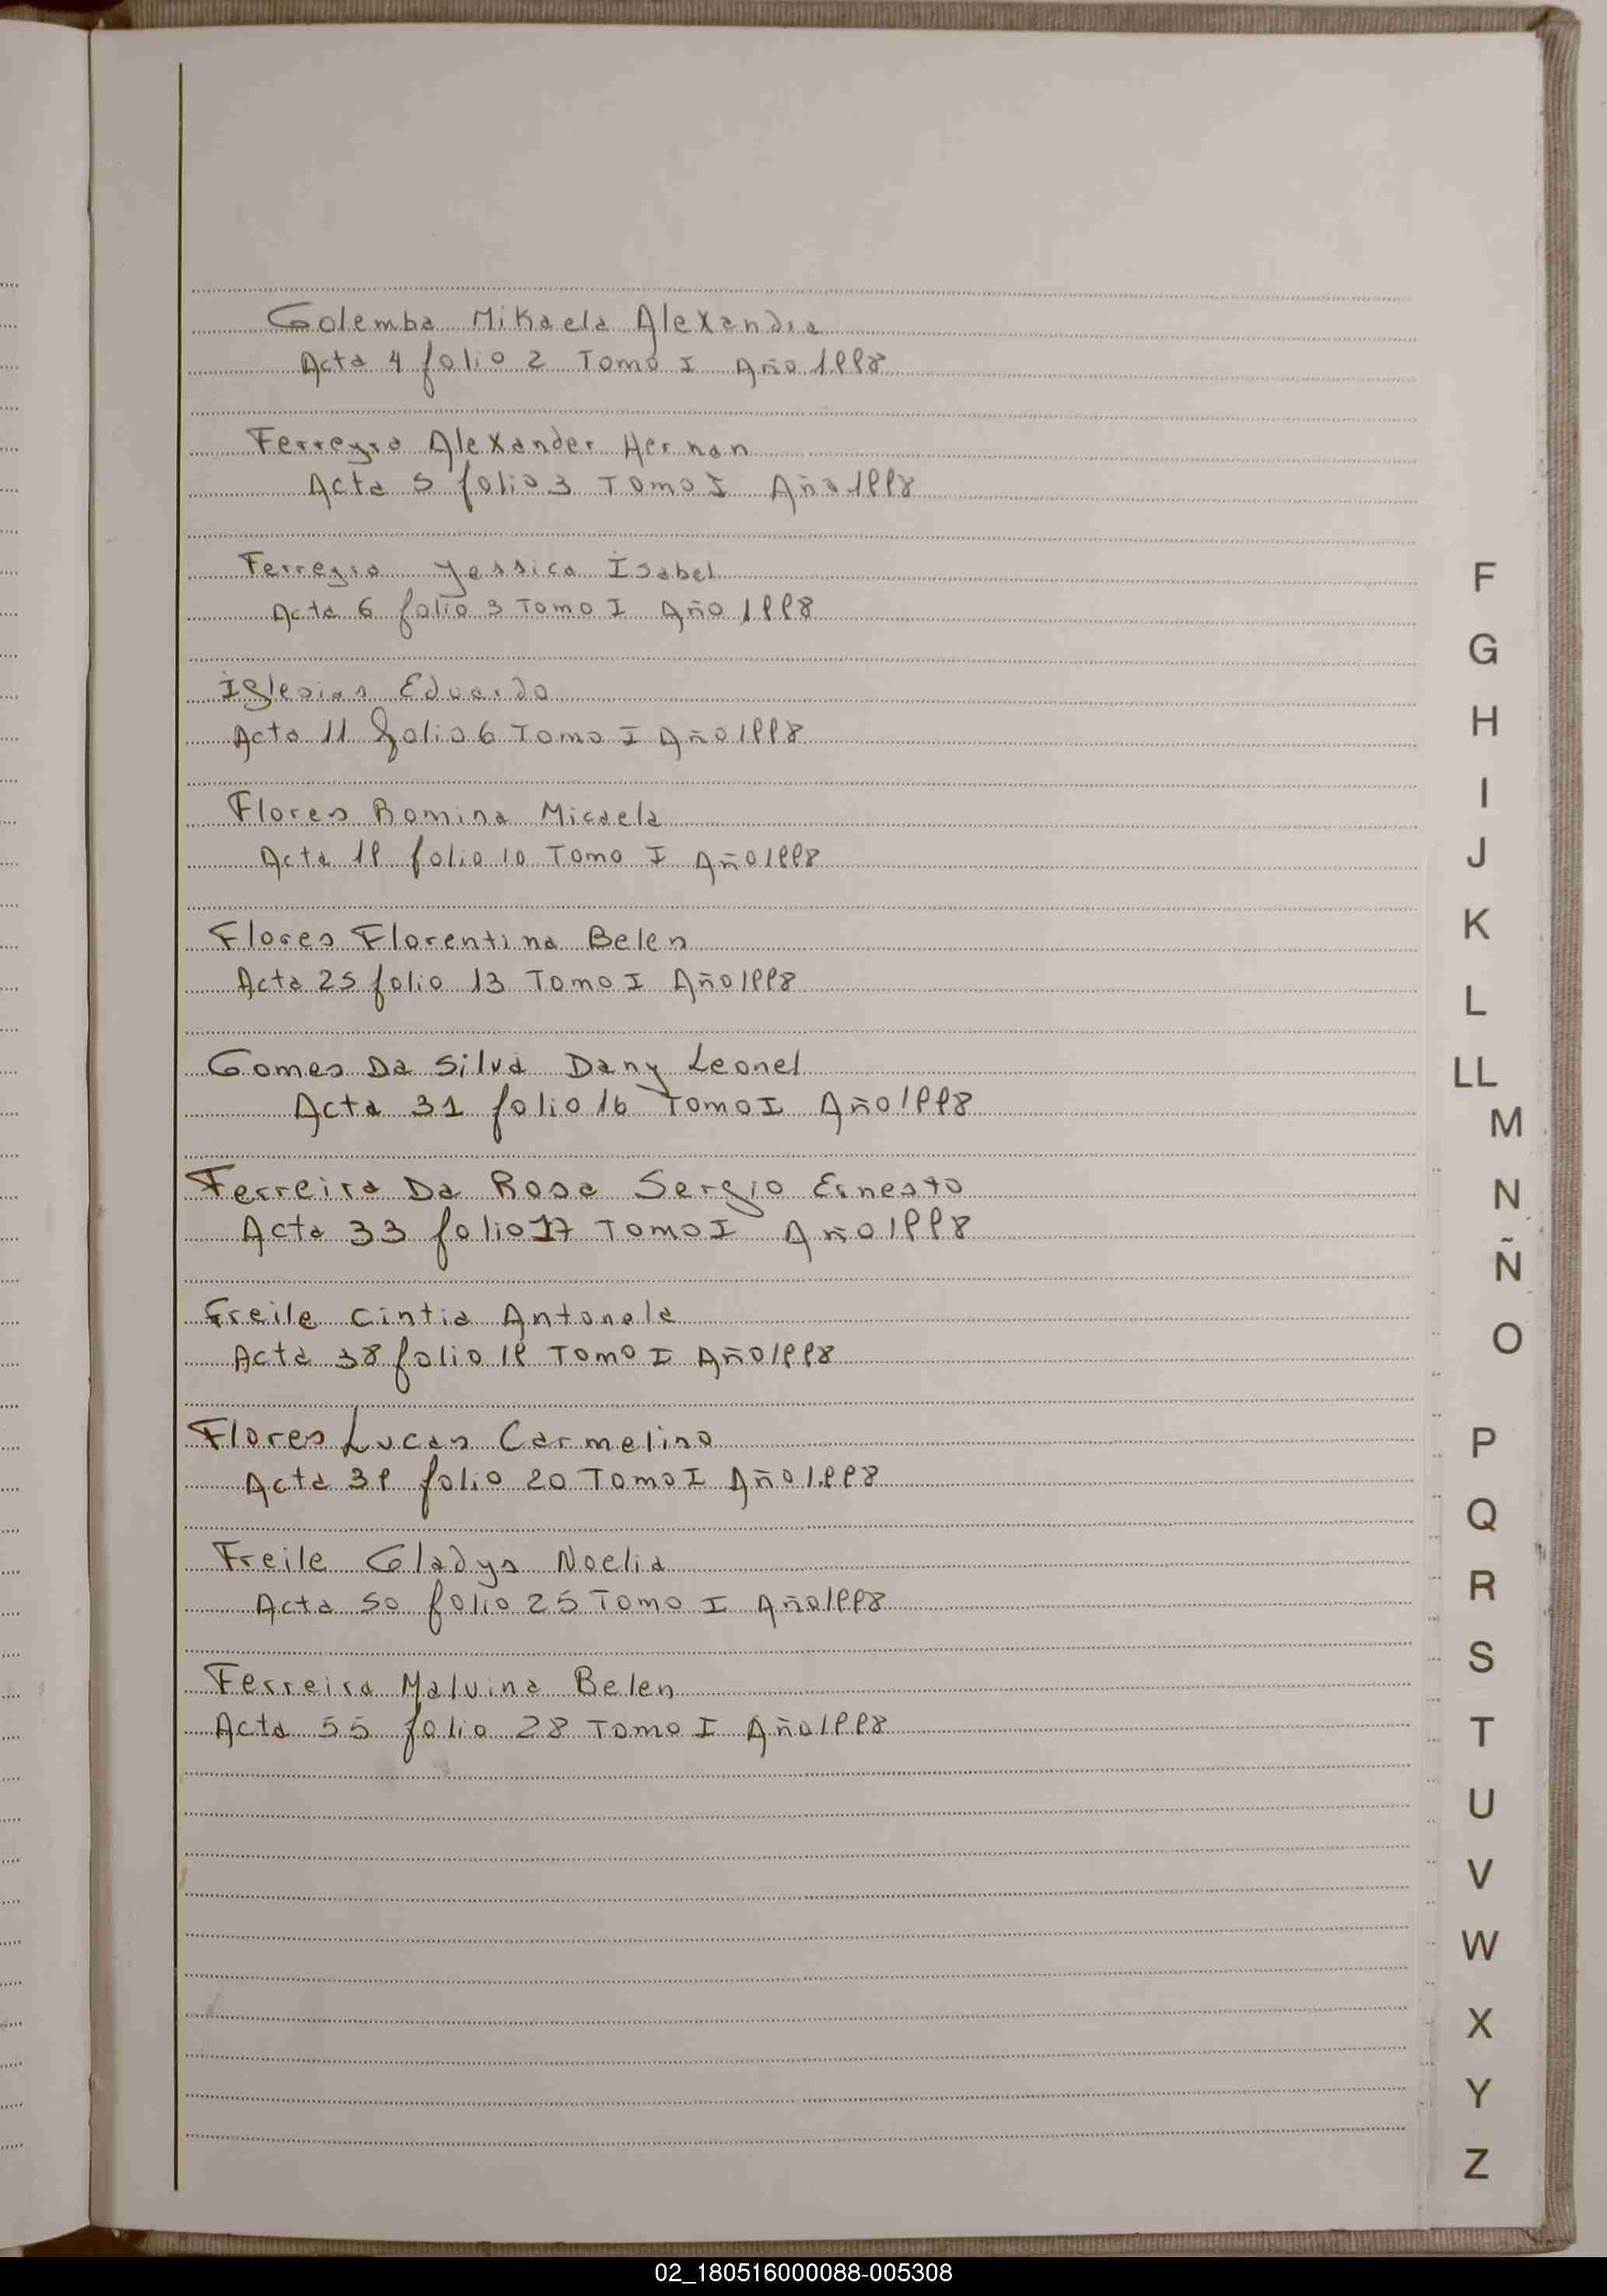 Golemba Mikaela Alexandra
Acta 4 folio 2 Tomo I Año 1998
Ferreyra Alexander Hernan
Acta 5 folio 3 Tomo I Año 1998
Ferreyra Yessica Isabel
Acta 6 folio 3 Tomo I Año 1998
Iglesias Eduardo
Acta 11 folio 6 Tomo I Año 1998
Flores Romina Micaela
Acta 19 folio 10 Tomo I Año 1998
Flores Florentina Belen
Acta 25 folio 13 Tomo I Año 1998
Gomes Da Silva Dany Leonel
Acta 31 folio 16 Tomo I Año 1998
Ferreira Da Rosa Sergio Ernesto
Acta 33 folio 17 Tomo I Año 1998
Freile Cintia Antonela
Acta 38 folio 19 Tomo I Año 1998
Flores Lucas Carmelino
Acta 39 folio 20 Tomo I Año 1998
Freile Gladys Noelia
Acta 50 folio 25 Tomo I Año 1998
Ferreira Malvina Belen
Acta 55 folio 28 Tomo I Año 1998
F
G
H
I
J
K
L
LL
M
N
Ñ
O
P
Q
R
S
T
U
V
W
X
Y
Z
02_180516000088-005308